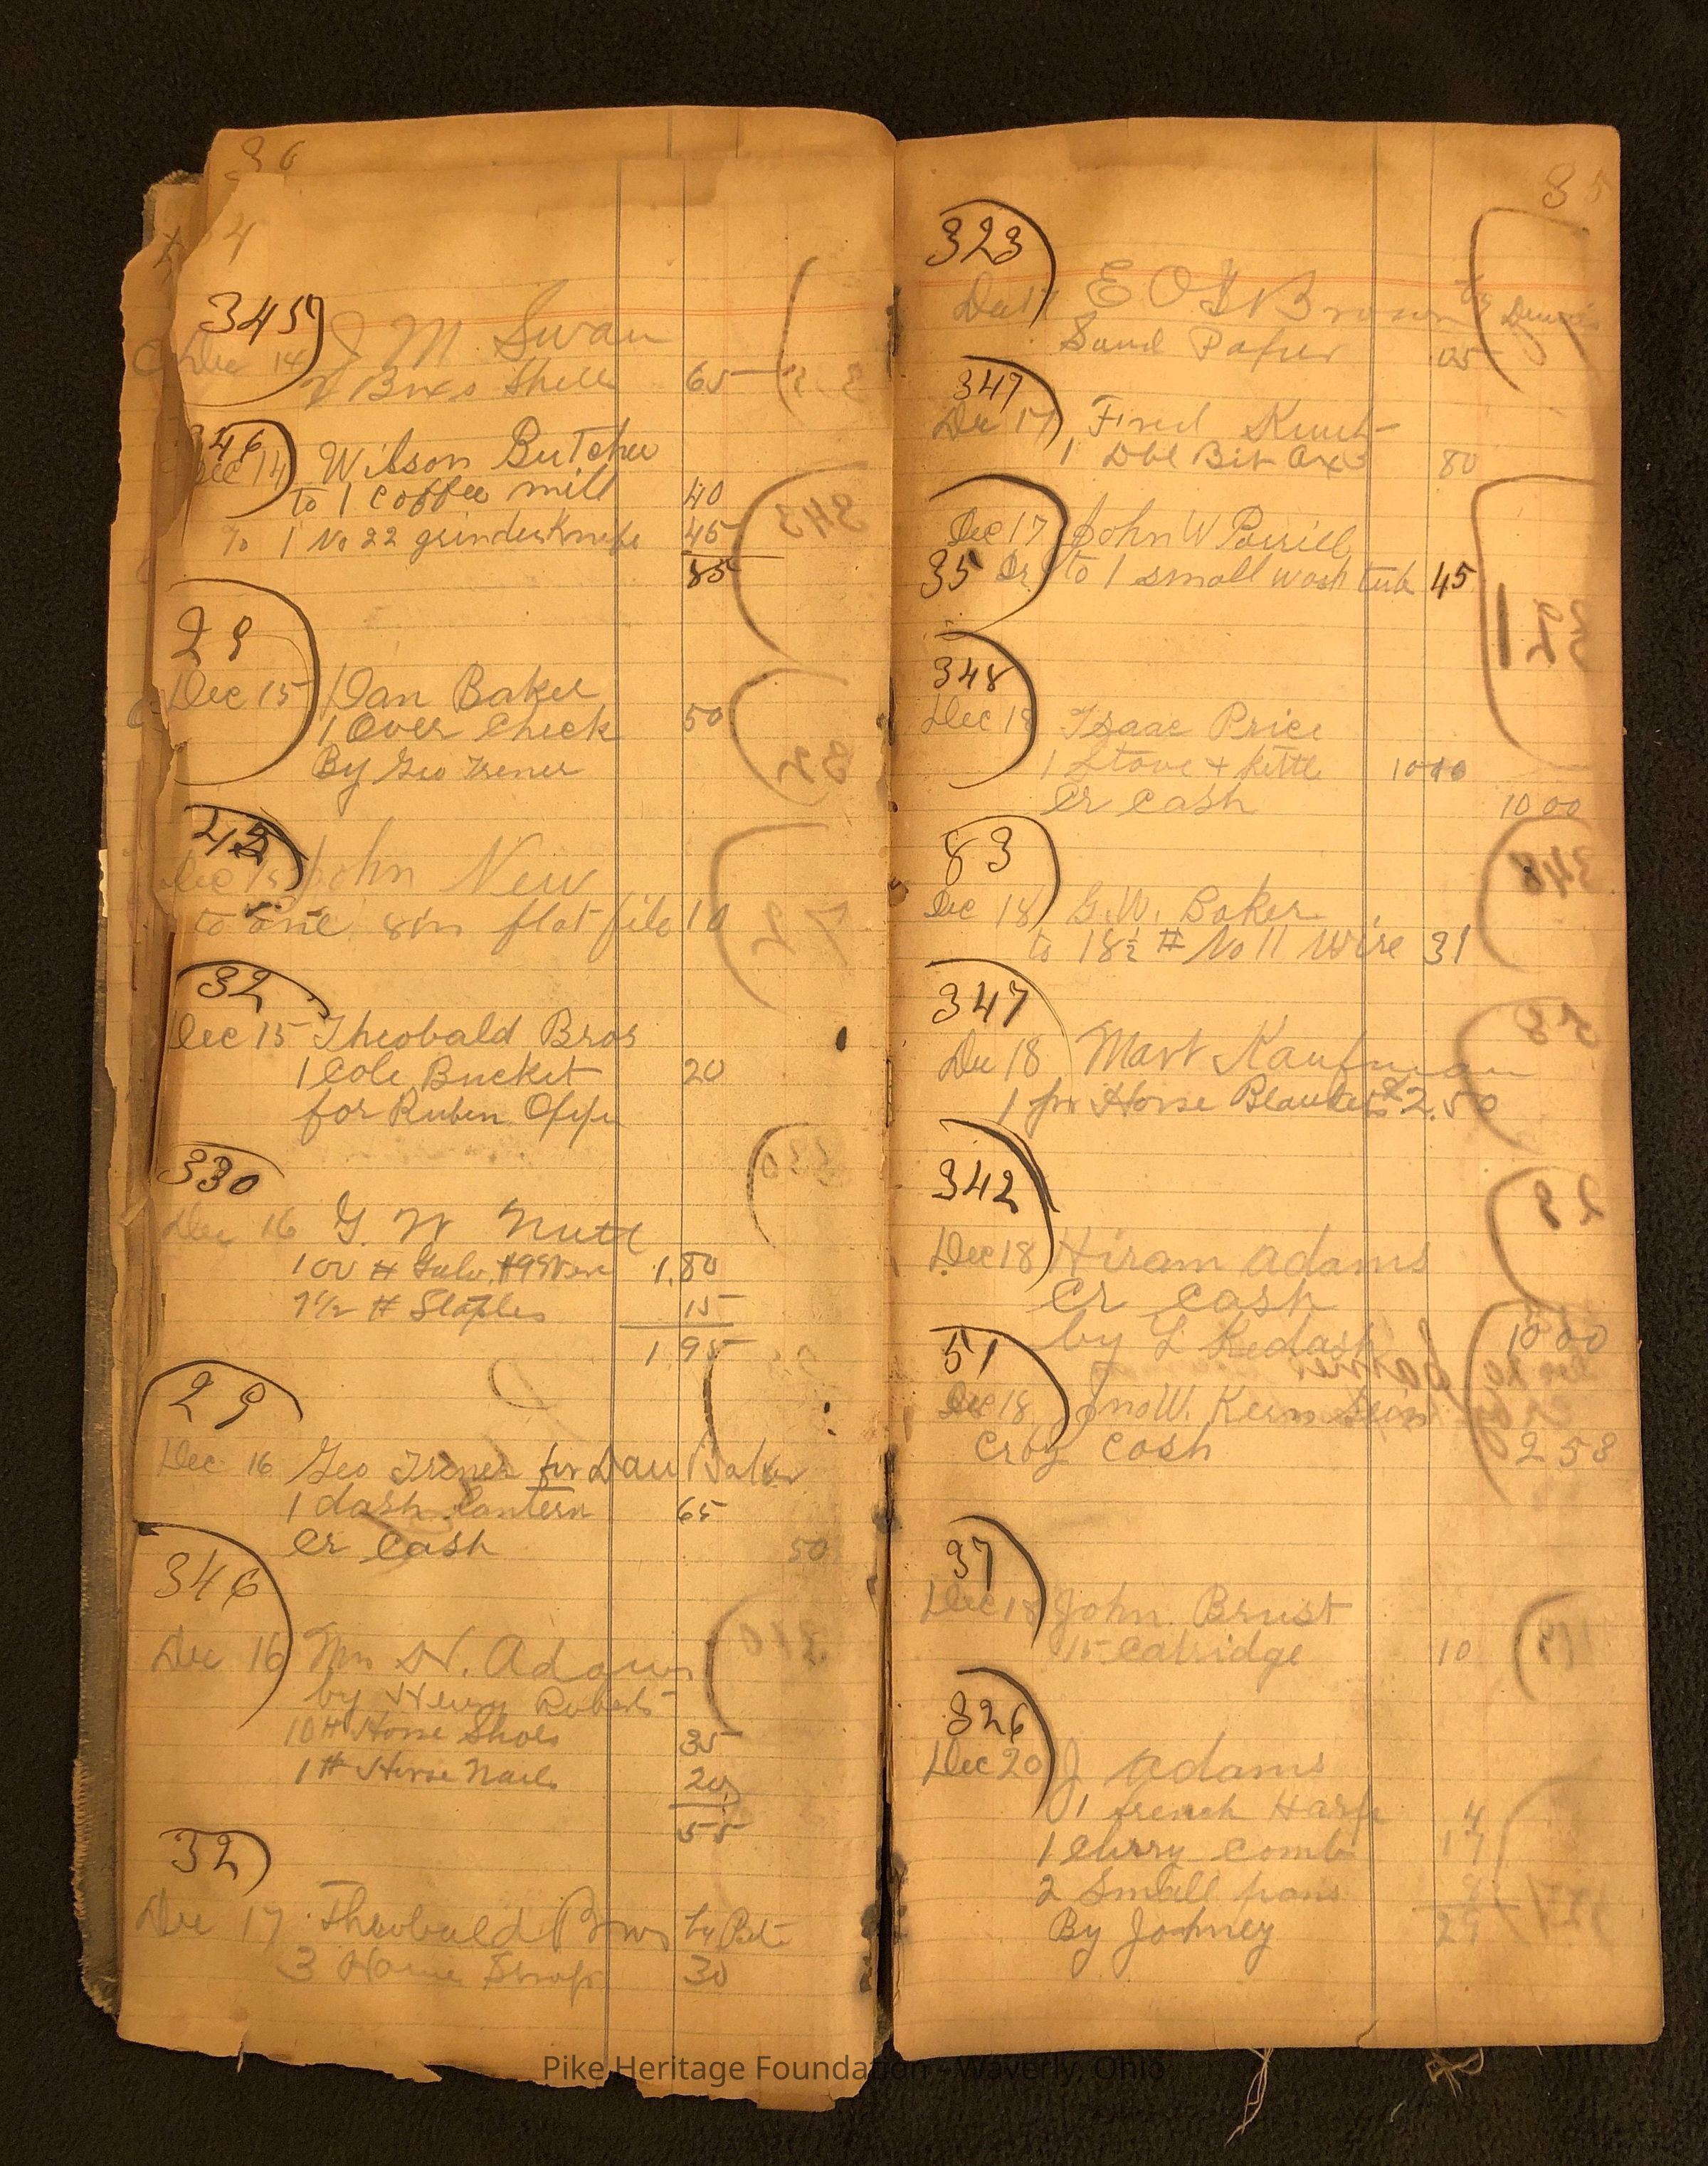 36
4
345
Dec 14 J M Swan
2 Boxs Shells 65
346
Dec 14 Wilson Butcher
to 1 Coffee mill 40
To 1 No 22 grinder Knife 45
85
29
Dec 15 Dan Baker
1 Over Check 50
By Geo Trener
Dec 15 John New
to one 8in flat file 10
32
Dec 15 Theobald Bros
1 Cole Bucket 20
for Ruben Opp
330
Dec 16 G. W Nutt
100 # Galv. #9 Wire 1.80
# Staples 15
1.95
29
Dec 16 Geo Trener for Dan Baker
1 dash Lantern 65
Cr Cash 50
346
Dec 16 Mrs N. Adams
by Henry Roberts
10# Horse Shoes 35
1# Horse Nails 20
55
32
Dec 17 Theobald Bros by
3 Hame Straps 30
85
323
Dec 17 Brown by
Sand Paper 05
347
Dec 17 Fred
1 Dbl Bit Ax 80
Dec 17 John W
35 Dr to 1 small wash tub 45
348
Dec 18 Isaac Price
1 Stove + Kettle 1000
Cr Cash 10 00
83
Dec 18 G.W. Baker
to 18½ # No 11 Wire 31
347
Dec 18 Mart Kaufman
1 pr Horse Blankets 2.50
342
Dec 18 Hiram Adams
Cr Cash
by L 10 00
51
Dec 18 Jno W. Kern
Cr by Cash 2 58
37
Dec 18 John Brust
15 Catridge 10
326
Dec 20 J Adams
1 french Harp 4
1 Curry Comb 17
2 Small pans
By Johney
Pike Heritage Foundation - Waverly, Ohio